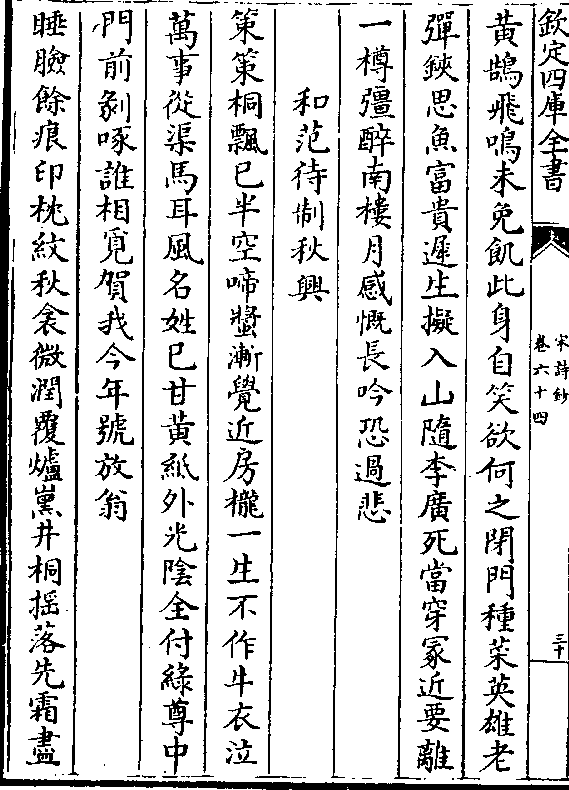 欽定四庫全書
宋詩鈔
卷六十四
三十
黃鵠飛鳴未免飢此身自笑欲何之閉門種菜英雄老
彈鋏思魚富貴遲生擬入山隨李廣死當穿冢近要離
一樽彊醉南樓月感慨長吟恐過悲
和范待制秋興
策策桐飄已半空啼螿漸覺近房櫳一生不作牛衣泣
萬事從渠馬耳風名姓已甘黃紙外光陰全付綠尊中
門前剝啄誰相覓賀我今年號放翁
睡臉餘痕印枕紋秋衾微潤覆爐熏井桐揺落先霜盡